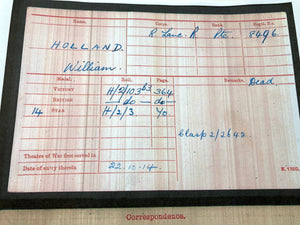 Name. Corps. Rank. Regtl. No.
HOLLAND. R. Lanc. R Pte. 8496
William.
Medal. Roll. Page. Remarks. Dead.
VICTORY H/2/103B3 364
BRITISH -do- -do-
14 STAR H/2/3. 40.
Clasp 2/2642.
Theatre of War first served in
Date of entry therein 22.10.14.
K. 1380.
Correspondence.